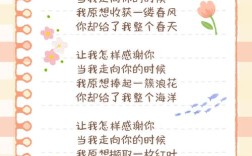 当我走向你的时候
我原想收获一缕春风
你却给了我整个春天
让我怎样感谢你
当我走向你的时候
我原想捧起一簇浪花
你却给了我整个海洋
让我怎样感谢你
当我走向你的时候
我原想撷取一枚红叶